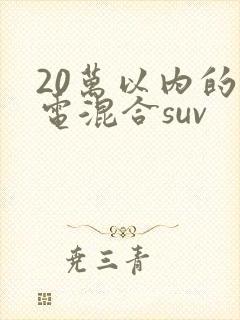 20萬以內的
電混合suv
尭三青